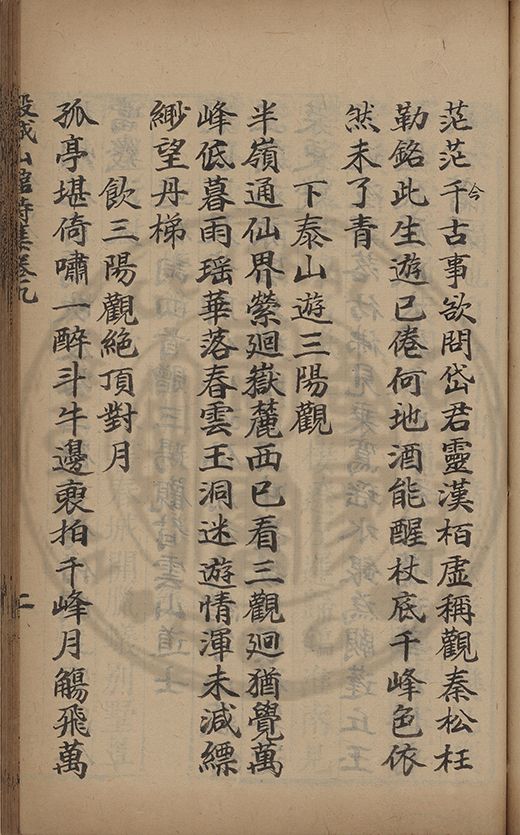 茫茫千古事欲問岱君靈漢栢虚稱觀秦松枉
今
勒銘此生遊已倦何地酒能醒杖底千峰色依
然未了青
下泰山遊三陽觀
半嶺通仙界縈廻嶽麓西已看三觀廻猶覺萬
峰低暮雨瑶華落春雲玉洞迷遊情渾未減縹
緲望丹梯
飲三陽觀絶頂對月
孤亭堪倚嘯一醉斗牛邊袖拍千峰月觴飛萬
穀城山館詩集卷九
二